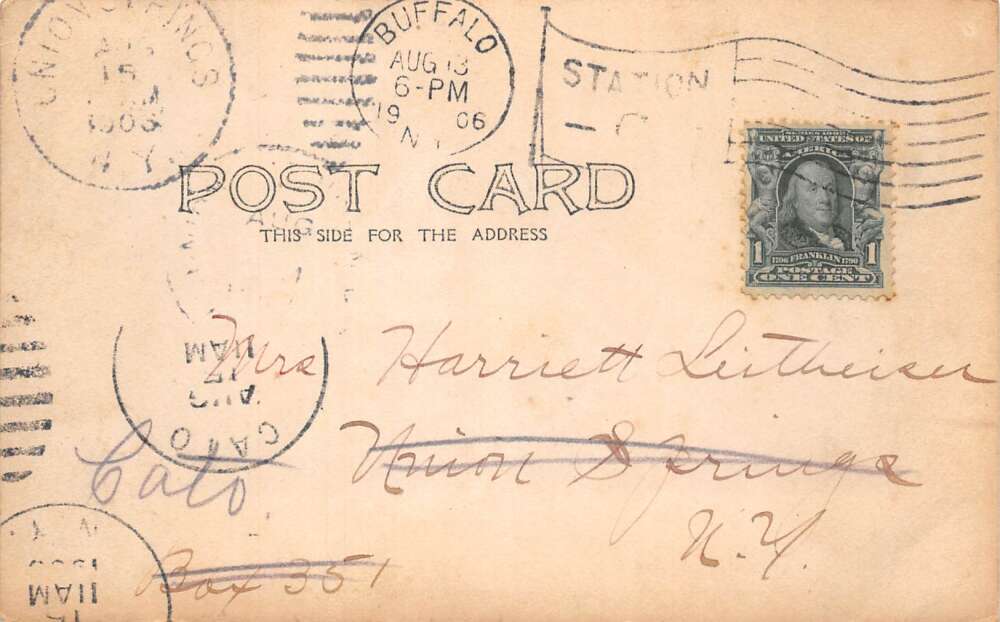 UNION SPRINGS
15
1906
N.Y.
BUFFALO
AUG 13
6-PM
19 06
N.Y.
STATION
- C
POST CARD
THIS SIDE FOR THE ADDRESS
AUG
SERIES 1902
UNITED STATES OF
AMERICA
1 1706 FRANKLIN 1790 1
POSTAGE
ONE CENT
Mrs Harriett Leitheiser
Union Springs
N.Y.
Cato
Box 351
CATO
AUG
17
11AM
N.Y.
11AM
15